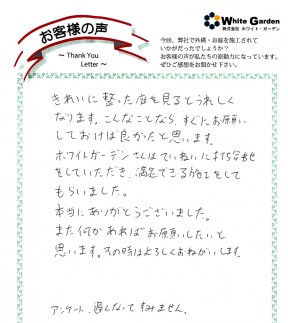 お客様の声
~ Thank You
Letter ~
White Garden
株式会社 ホワイト・ガーデン
今回、弊社で外構・お庭を施工されて
いかがだったでしょうか？
お客様の声が私たちの原動力になっています。
ぜひご感想をお聞かせ下さい。
きれいに整った庭を見るとうれしく
なります。こんなことなら、すぐにお願い
しておけば良かったと思います。
ホワイトガーデンさんはていねいに打ち合せ
をしていただき、満足できる施工をして
もらいました。
本当にありがとうございました。
また何かあればお願いしたいと
思います。その時はよろしくおねがいします。
アンケート、遅くなってすみません。